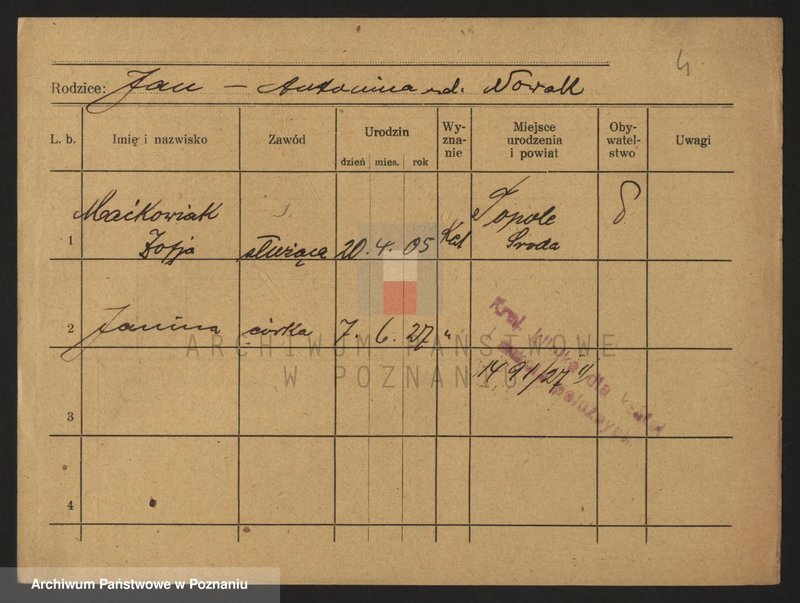 4.
Rodzice: Jan — Antonina zd. Nowak
L. b. Imię i nazwisko Zawód Urodzin Wy-zna-nie Miejsce urodzenia i powiat Oby-watel-stwo Uwagi
dzień mies. rok
Maćkowiak Topole
1 Zofja służąca 20. 4. 05 Kat Środa
2 Janina córka 7. 6. 27 "
ARCHIWUM PAŃSTWOWE
W POZNANIU
1491/27
3
4
Archiwum Państwowe w Poznaniu